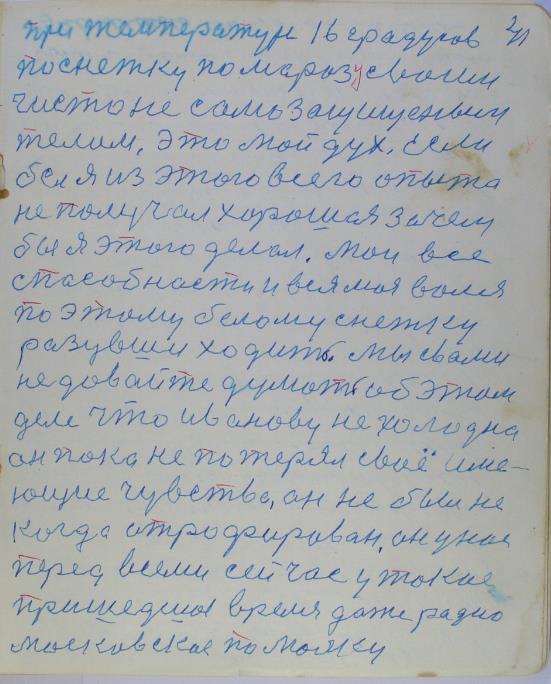 при температури 16 градусов
2л
поснежку помарозу своим
чистоне само защищеным
телим, это мой дух. Если
бел я из этого всего опыта
неполучал хорошая зачем
бы я этого делал. Мои все
спасобнасти и вся моя воля
по этому белому снежку
разувши ходить. Мы свами
недовайте думоть об этом
деле что Иванову не холодна
он пока не потерял своё име-
ющие чувства, он не был не
когда атрофирован, он у нас
перед всеми сейчас у токае
пришедшая время даже радио
московское по маяку